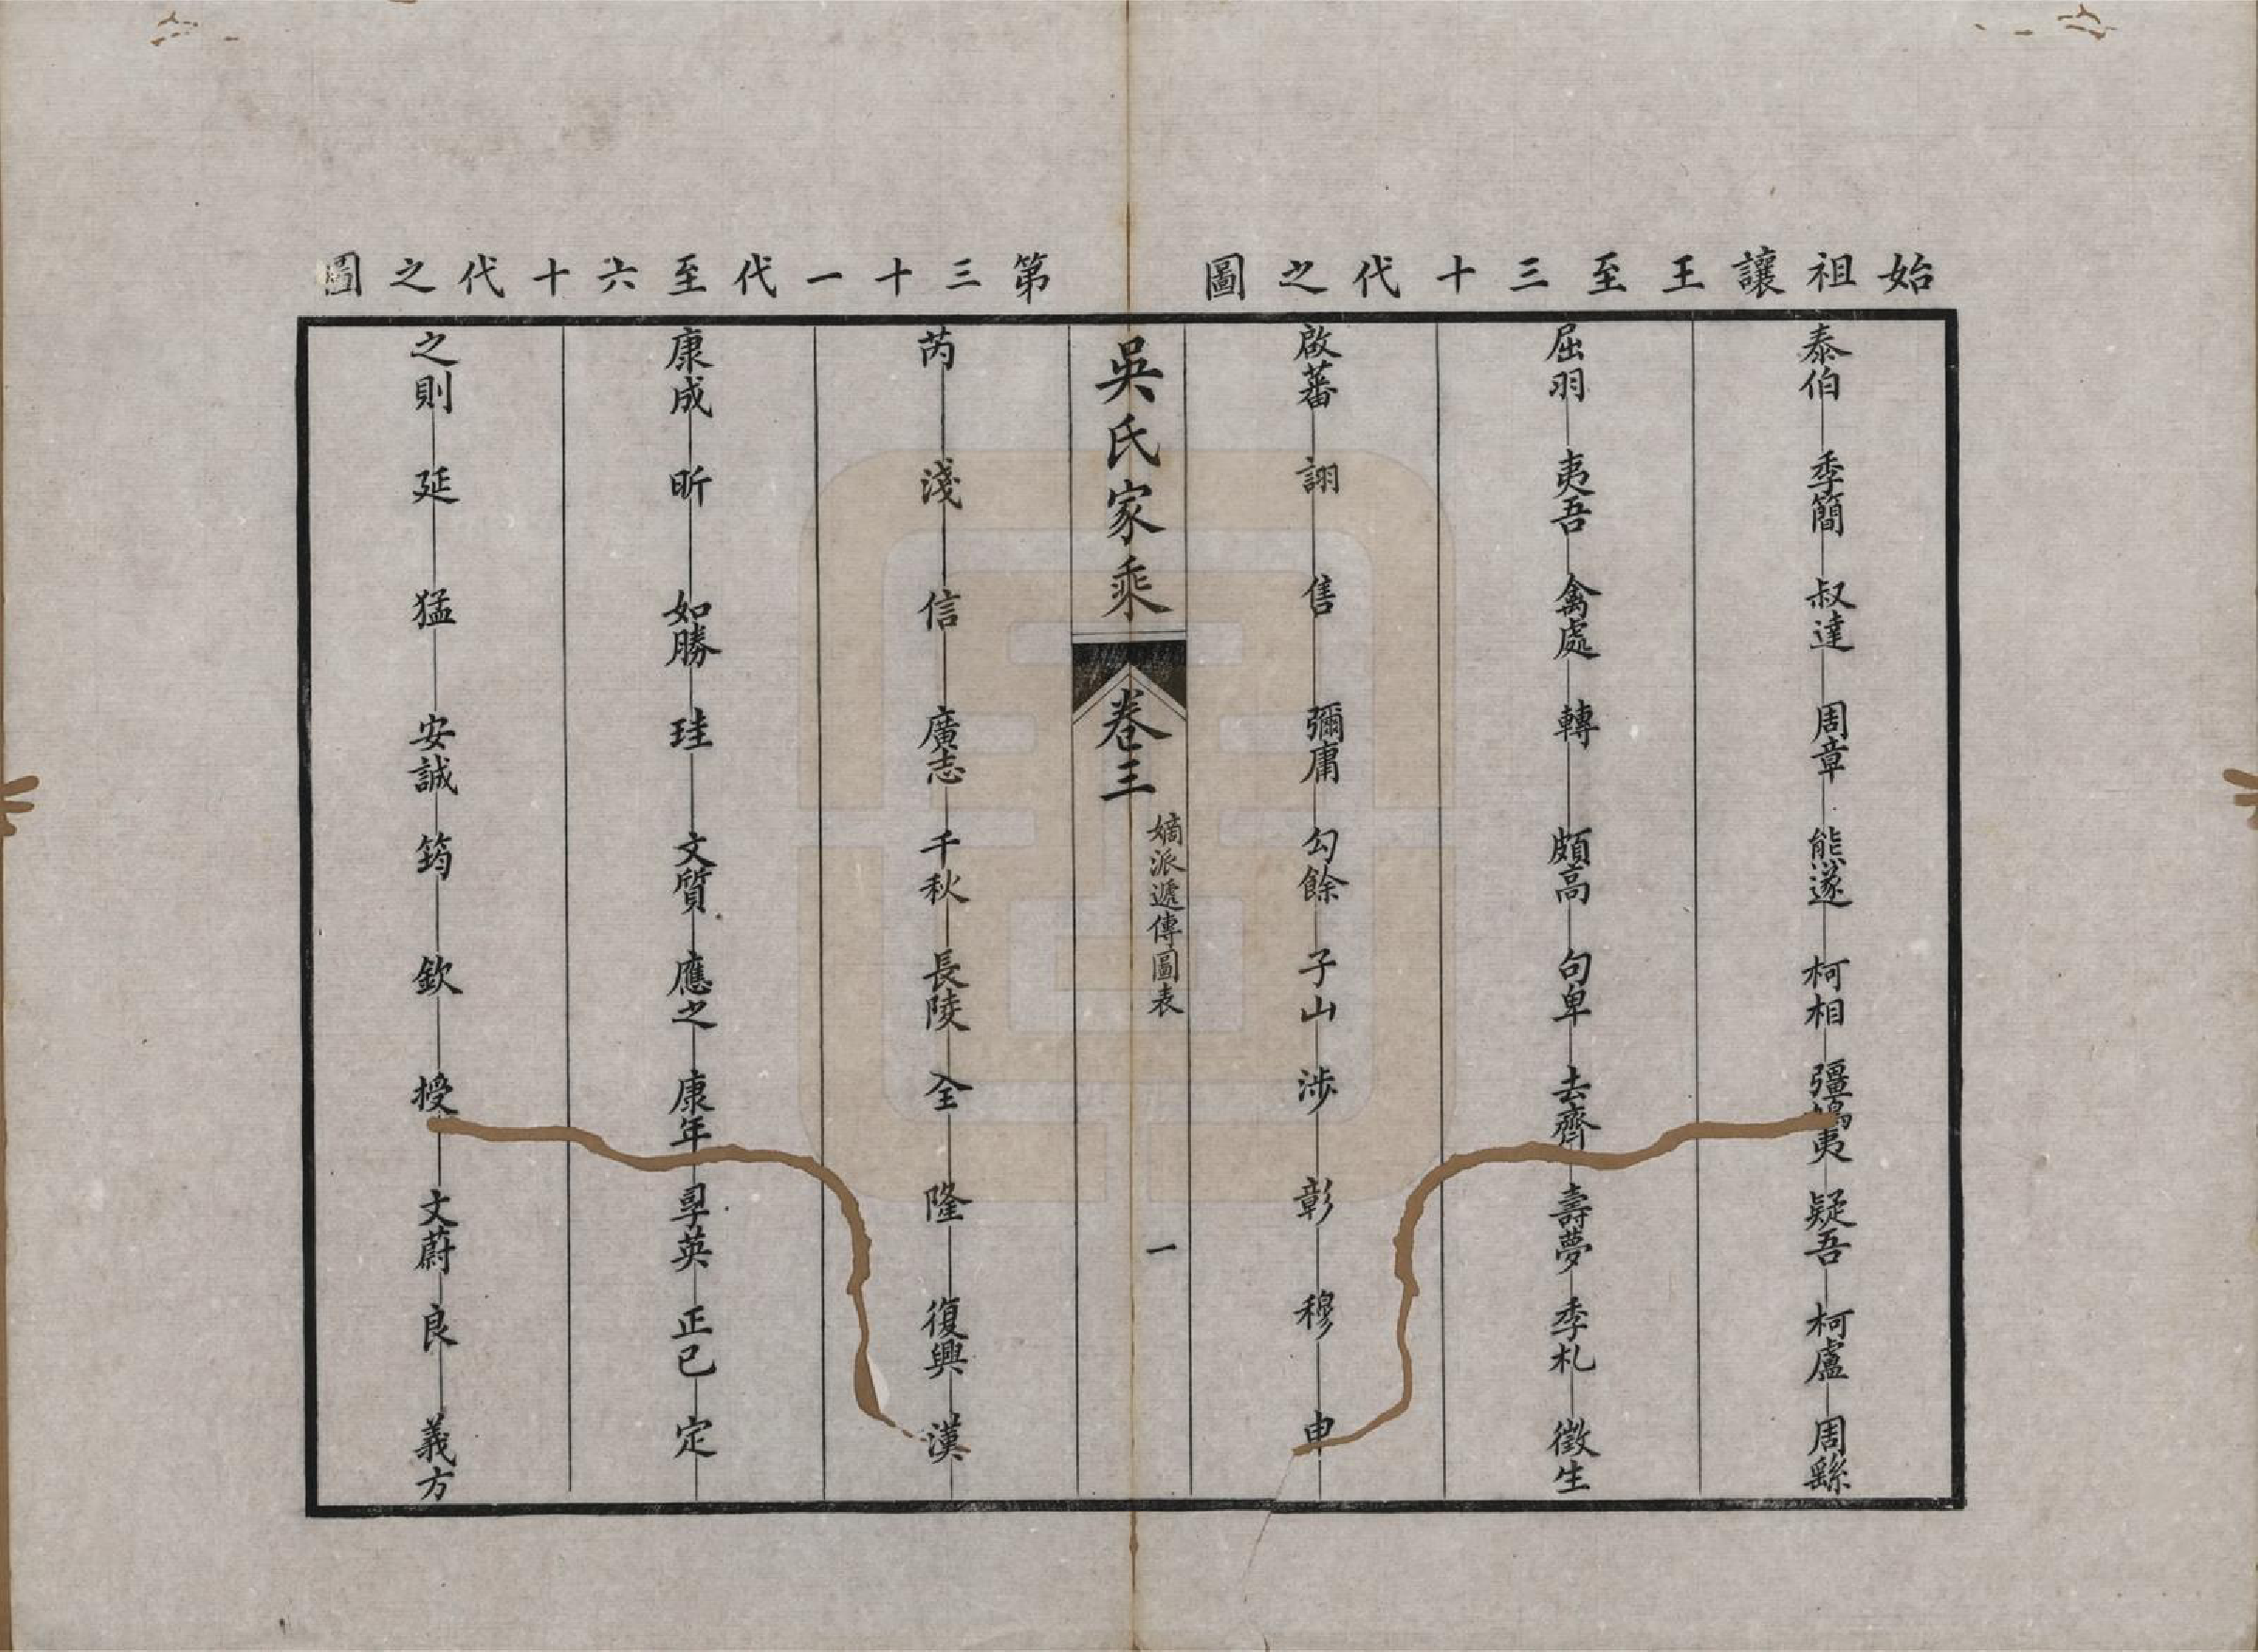 始祖讓王至三十代之圖
泰伯 季簡 叔達 周章 熊遂 柯相 彊鳩夷 疑吾 柯盧 周繇
屈羽 夷吾 禽處 轉 頗高 句卑 去齊 壽夢 季札 徵生
啟蕃 詡 售 彌庸 勾餘 子山 涉 彰 穆 申
吳氏家乘 卷三
嫡派遞傳圖表
一
第三十一代至六十代之圖
芮 淺 信 廣志 千秋 長陵 全 隆 復興 漢
康成 昕 如勝 珪 文質 應之 康年 英 正已 定
之則 延 猛 安誠 筠 欽 授 文蔚 良 義方